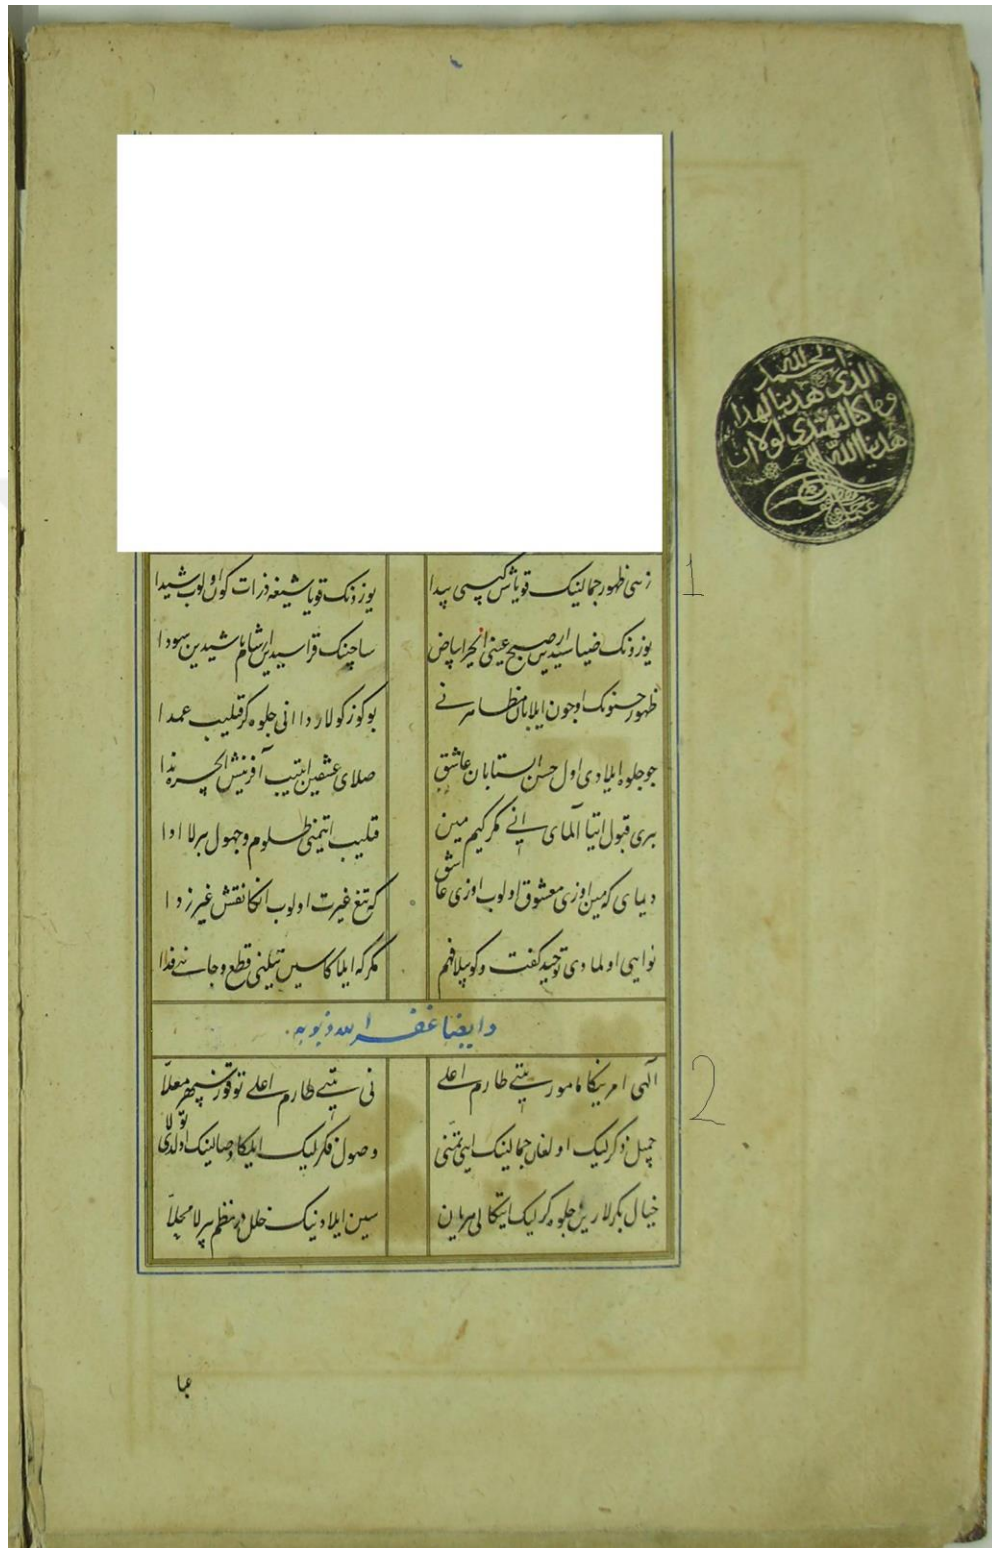 الحمد لله
الذي هدينا لهذا
وما كنا لنهتدي لولا ان
هدينا الله
1
زهی ظهور جمالینک قویاش کیبی پیدا یوزونک قویاشیغه ذرات کون اولوب شیدا
یوزونک ضیاسیدین صبح عینی انجرا بیاض ساچنک قراسیدین شام باشیدین سودا
ظهور حسنونک اوچون ایلابان مظاهرنے بو کوزکولاردا انی جلوه کر قلیب عمدا
جو جلوه ایلادی اول حسن ایستابان عاشق صلای عشقین ایتیب آفرینش ایجره ندا
بری قبول ایتا آلمای انے مکر کیم مین قلیب اتیمنی ظلوم و جهول برلا ادا
دیمای که مین اوزی معشوق اولوب اوزی عاشق که تیغ غیرت اولوب انکا نقش غیر زدا
نوایی اولمادی توحید کفت و کوی بیلا فهم مکر که ایلاکاسین تیلینی قطع و جانے فدا
وایضا غفر الله ذنوبه
2
الهی امرینکا مامور یتے طارم اعلے نی یتے طارم اعلے توقوز سپهر معلا
جمیل ذکرلیک اولغان جمالینک ایتی تمنی وصول فکرلیک ایلیکا وصالینک اولدی تولا
خیال بکرلارین جلوه کرلیک ایتکالی هر یان سین ایلادینک حلل نظم برلا مجلا
عبا